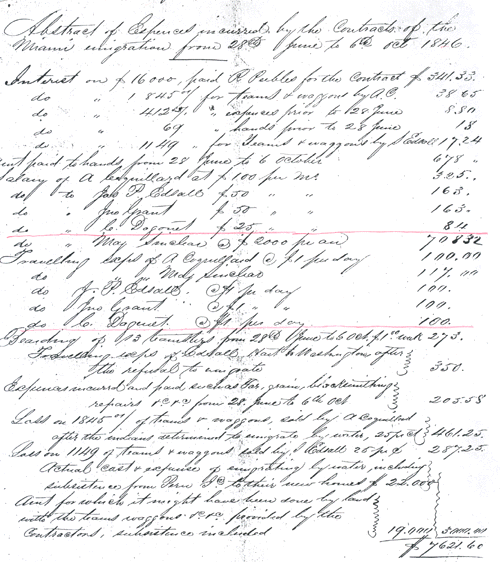 Abstract of Expences incurred by the Contracts of the
Miami emigration from 28th June to 6th Oct 1846.
Interest on $16000, paid R. Peebles for the Contract $341.33.
do " 1845 00/ for teams & waggons by A.C. 38.05
do " 412 " expences prior to 28 June 8.80
do " 69 " hands prior to 28 June 18
do " 1149 " for teams & waggons by Edsall 17.24
paid to hands, from 28 June to 6 October 678 "
Salary of A Coquillard at $100 per Mo. 325.
do to Jas P. Edsall $50 " " 163.
do " Jno Grant $50 " " 163.
do " C. Dagonet $25 " " 84
do " May Sinclear @ $2000 pr an 708 32
Travelling exps of A Coquillard @ $1 per day 100.00
do " May Sinclear 117.00
do J. P. Edsall @ $1 per day 100.
do Jno Grant @ $1 " " 100.
do C. Dagonet @ $1 per day 100.
Boarding of 13 teamsters from 28th June to 6 Oct $1 50 week 273.
Travelling exps of Edsall to Washington after
the refusal to emigrate 350.
Expences incurred and paid such as for, grain, blacksmithing
repairs &c &c from 28. June to 6th Oct 205.58
Loss on 1845 00/ of teams & waggons, sold by A Coquillard
after the indians determined to emigrate by water, 25 p ct 461.25
Loss on 1149 of teams & waggons sold by Edsall 25 p ct 287.25.
Actual cost & expence of emigrating by water, including
subsistence from Peru to their new homes $22.000
Amt for which it might have been done by land
with the teams waggons &c &c provided by the
Contractors, subsistence included 19.000 3.000.00
$7621.60